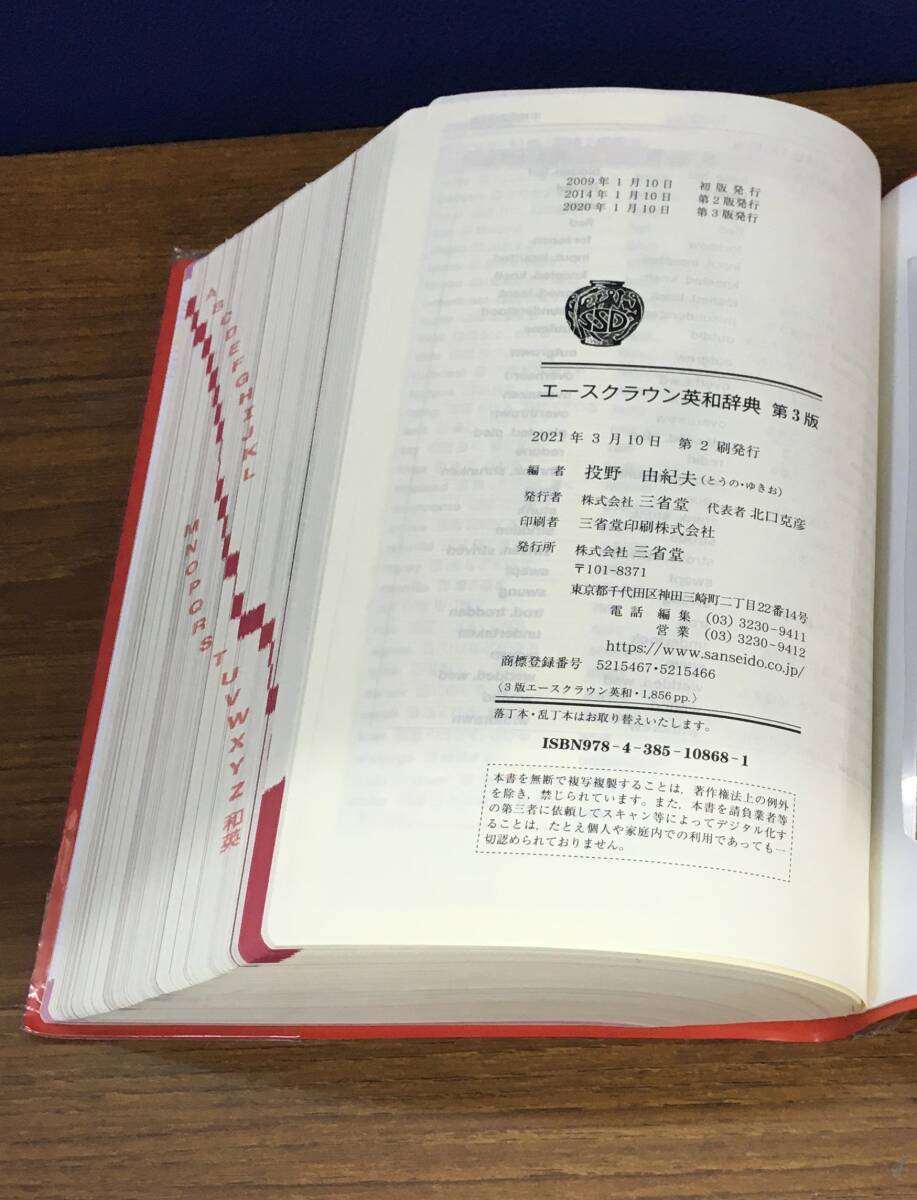 2009年 1月10日 初版発行
2014年 1月10日 第2版発行
2020年 1月10日 第3版発行
SSD
エースクラウン英和辞典 第3版
2021年 3月10日 第2刷発行
編者 投野 由紀夫(とうの・ゆきお)
発行者 株式会社 三省堂 代表者 北口克彦
印刷者 三省堂印刷株式会社
発行所 株式会社 三省堂
〒101-8371
東京都千代田区神田三崎町二丁目22番14号
電話 編集 (03) 3230-9411
営業 (03) 3230-9412
https://www.sanseido.co.jp/
商標登録番号 5215467・5215466
〈3版エースクラウン英和・1,856pp.〉
落丁本・乱丁本はお取り替えいたします。
ISBN978-4-385-10868-1
本書を無断で複写複製することは,著作権法上の例外
を除き,禁じられています。また,本書を請負業者等
の第三者に依頼してスキャン等によってデジタル化す
ることは,たとえ個人や家庭内での利用であっても一
切認められておりません。
A
B
C
D
E
F
G
H
I
J
K
L
M
N
O
P
Q
R
S
T
U
V
W
X
Y
Z
和英